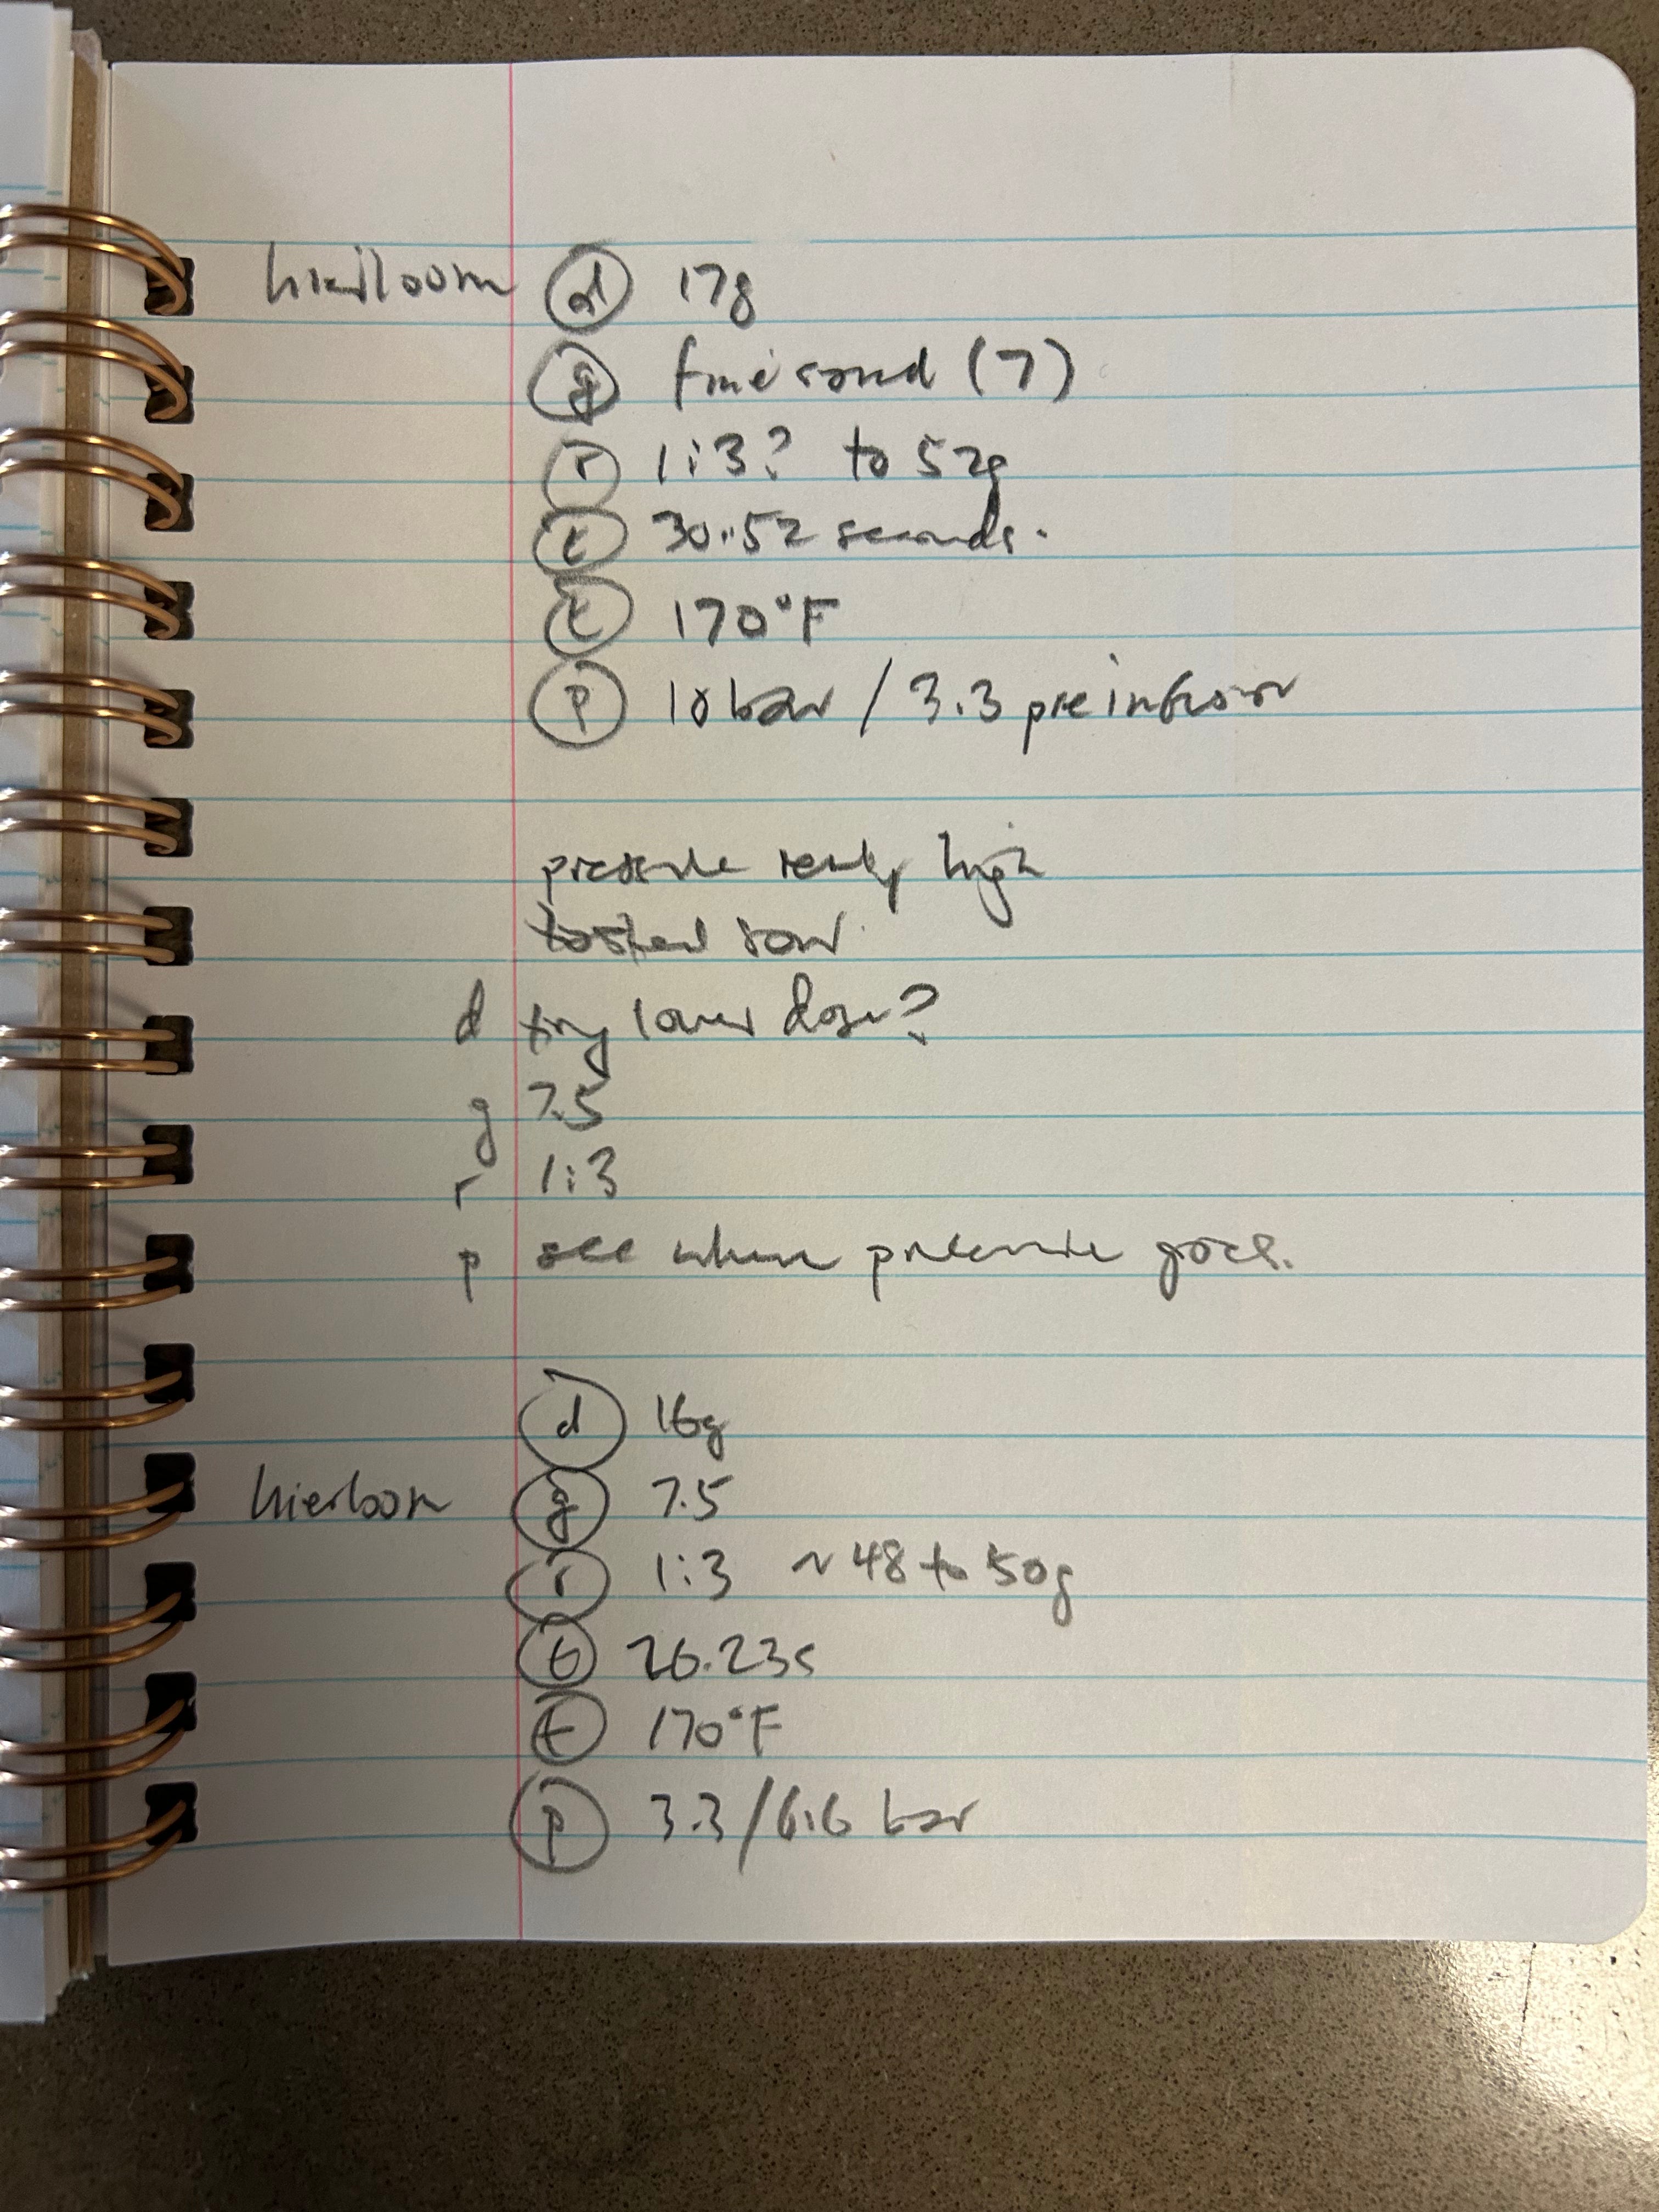 hierloom (d) 17g
(g) fine sand (7)
(r) 1:3? to 52g
(t) 30.52 seconds.
(t) 170°F
(p) 10 bar / 3.3 preinfusion
pressure really high
tasted sour.
d try lower dose?
g 7.5
r 1:3
p see where pressure goes.
(d) 16g
hierloom (g) 7.5
(r) 1:3 ~48 to 50g
(t) 26.23s
(t) 170°F
(p) 3.3/6.6 bar